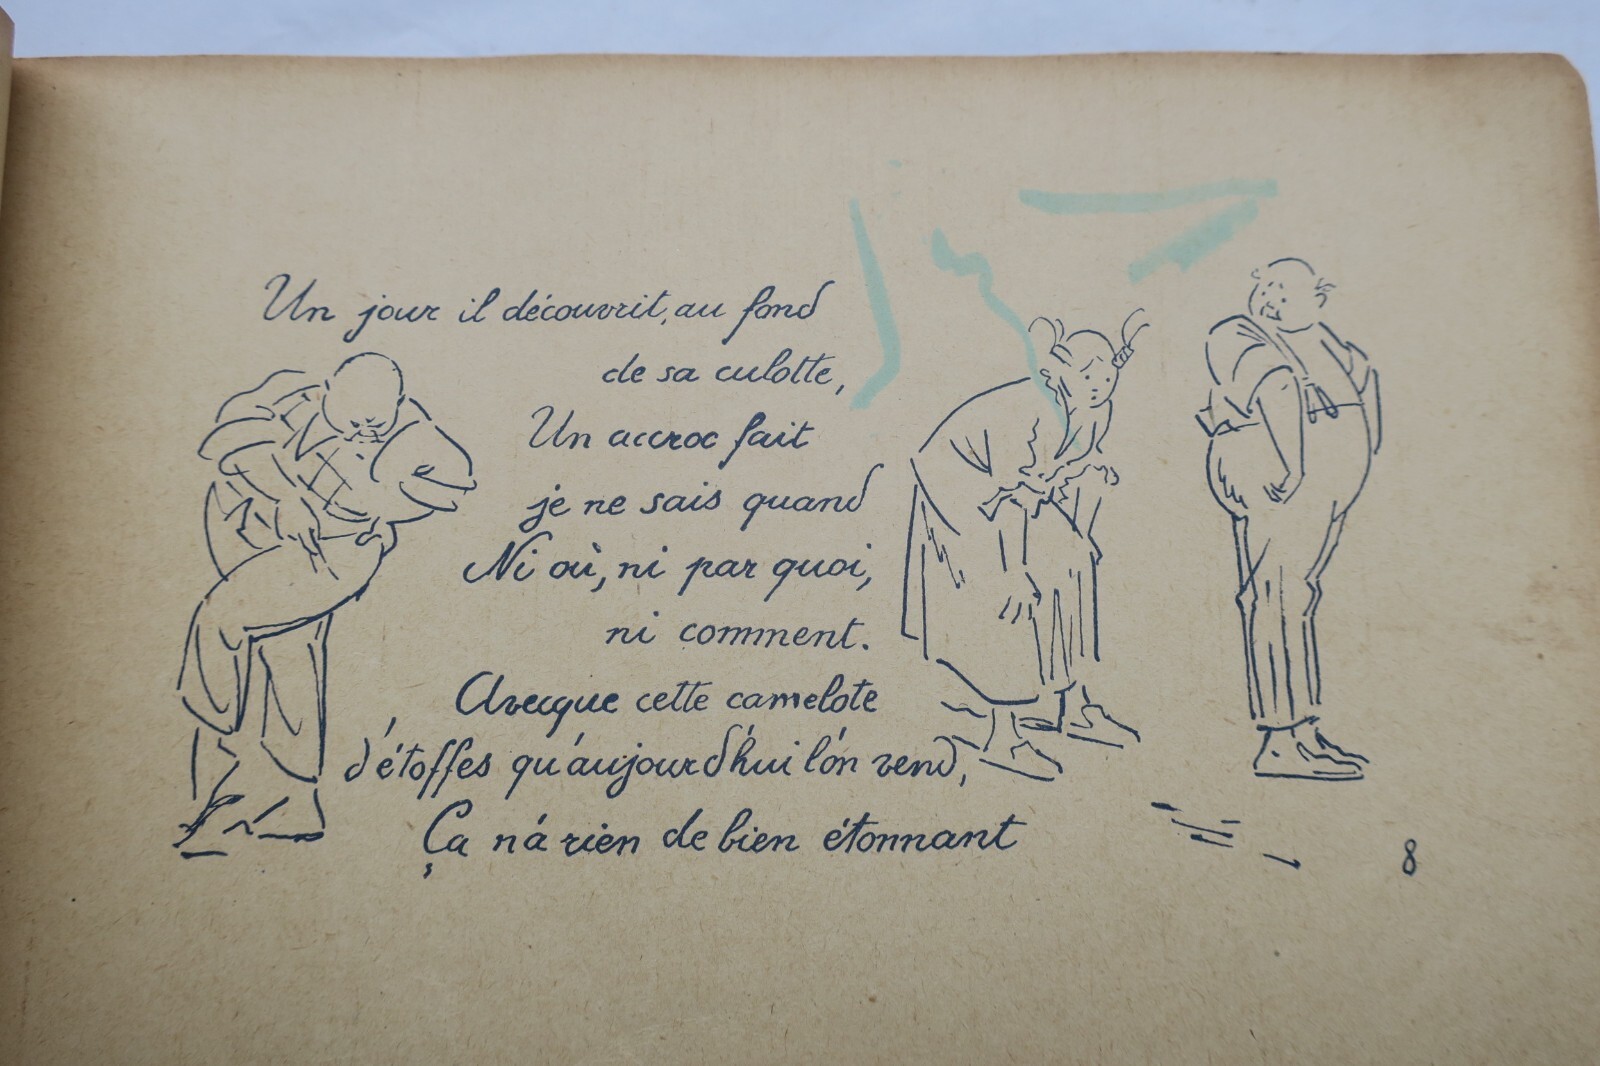 Un jour il découvrit, au fond
de sa culotte,
Un accroc fait
je ne sais quand
Ni où, ni par quoi,
ni comment.
Avecque cette camelote
d'étoffes qu'aujourd'hui l'on vend,
Ça n'a rien de bien étonnant
8